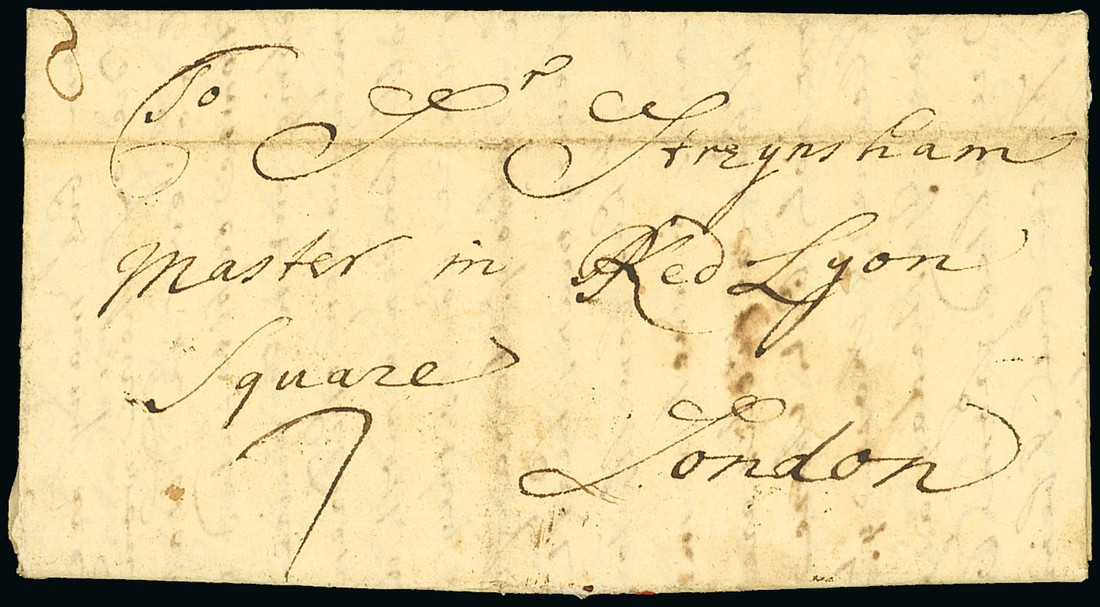 To Sr Streynsham
Master in Red Lyon
Square
London
7